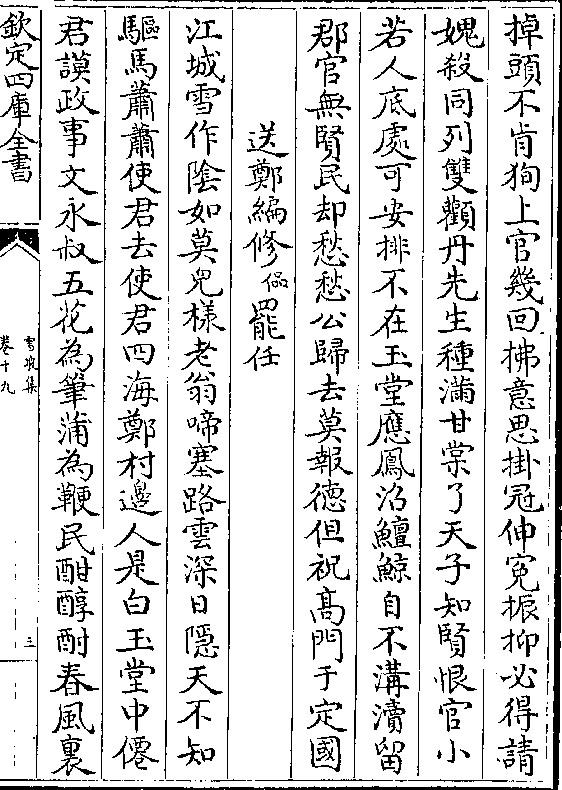 掉頭不肯狥上官幾回拂意思掛冠伸寃振抑必得請
媿殺同列雙顴丹先生種滿甘棠了天子知賢恨官小
若人底處可安排不在玉堂應鳳沼鱣鯨自不溝瀆留
郡官無賢民却愁愁公歸去莫報德但祝髙門于定國
送鄭編修 罷任
江城雪作陰如莫兒樣老翁啼塞路雲深日隱天不知
驅馬蕭蕭使君去使君四海鄭村邊人是白玉堂中僊
君謨政事文永叔五花為筆蒲為鞭民酣醇酎春風裏
欽定四庫全書
雪坡集
卷十九
三